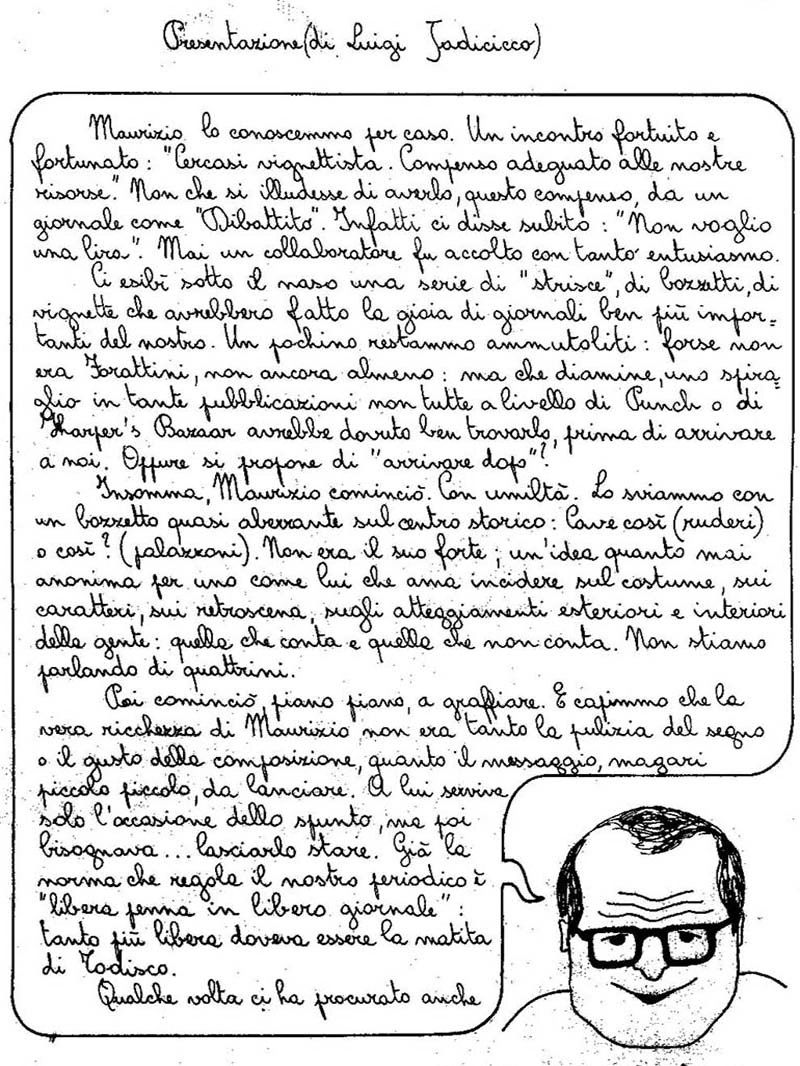 Presentazione (di Luigi Iadicicco)
Maurizio lo conoscemmo per caso. Un incontro fortuito e
fortunato : "Cercasi vignettista. Compenso adeguato alle nostre
risorse". Non che si illudesse di averlo, questo compenso, da un
giornale come "Dibattito". Infatti ci disse subito : "Non voglio
una lira". Mai un collaboratore fu accolto con tanto entusiasmo.
Ci esibì sotto il naso una serie di "strisce", di bozzetti, di
vignette che avrebbero fatto la gioia di giornali ben più impor=
tanti del nostro. Un pochino restammo ammutoliti : forse non
era Forattini, non ancora almeno : ma che diamine, uno spira=
glio in tante pubblicazioni non tutte a livello di Punch o di
Harper's Bazaar avrebbe dovuto ben trovarlo, prima di arrivare
a noi. Oppure si propone di "arrivare dopo"?
Insomma, Maurizio cominciò. Con umiltà. Lo sviammo con
un bozzetto quasi aberrante sul centro storico : Cave così (ruderi)
o così? (palazzoni). Non era il suo forte ; un'idea quanto mai
anonima per uno come lui che ama incidere sul costume, sui
caratteri, sui retroscena, sugli atteggiamenti esteriori e interiori
della gente : quella che conta e quella che non conta. Non stiamo
parlando di quattrini.
Poi cominciò, piano piano, a graffiare. E capimmo che la
vera ricchezza di Maurizio non era tanto la pulizia del segno
o il gusto della composizione, quanto il messaggio, magari
piccolo piccolo, da lanciare. A lui serviva
solo l'occasione dello spunto, ma poi
bisognava... lasciarlo stare. Già la
norma che regola il nostro periodico è
"libera penna in libero giornale" :
tanto più libera doveva essere la matita
di Todisco.
Qualche volta ci ha procurato anche